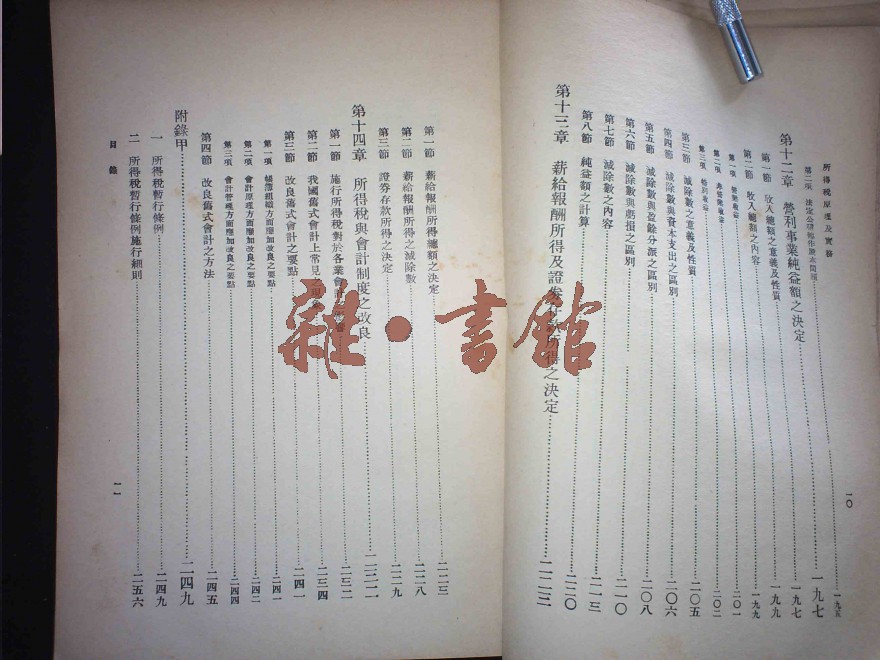 所得稅原理及實務
第二項 法定公積
一九五
第十二章 營利事業純益額之決定
一九七
第一節 收入總額之意義及性質
一九七
第二節 收入總額之內容
一九九
第一項 營業收益
一九九
第二項 非營業收益
二〇一
第三項 特別收益
二〇二
第三節 減除數之意義及性質
二〇五
第四節 減除數與資本支出之區別
二〇六
第五節 減除數與盈餘分派之區別
二〇八
第六節 減除數與虧損之區別
二一〇
第七節 減除數之內容
二一三
第八節 純益額之計算
二二〇
第十三章 薪給報酬所得及證券存款所得之決定
二二三
一〇
第一節 薪給報酬所得總額之決定
二二三
第二節 薪給報酬所得之減除數
二二八
第三節 證券存款所得之決定
二二九
第十四章 所得稅與會計制度之改良
第一節 施行所得稅對於各業會計
二三二
第二節 我國舊式會計上常見之現
二三四
第三節 改良舊式會計之要點
二四一
第一項 帳簿組織方面應加改良之要點
二四一
第二項 會計原理方面應加改良之要點
二四二
第三項 會計管理方面應加改良之要點
二四四
第四節 改良舊式會計之方法
二四五
附錄甲
二四九
一 所得稅暫行條例
二四九
二 所得稅暫行條例施行細則
二五六
目錄
一一
雜·書館